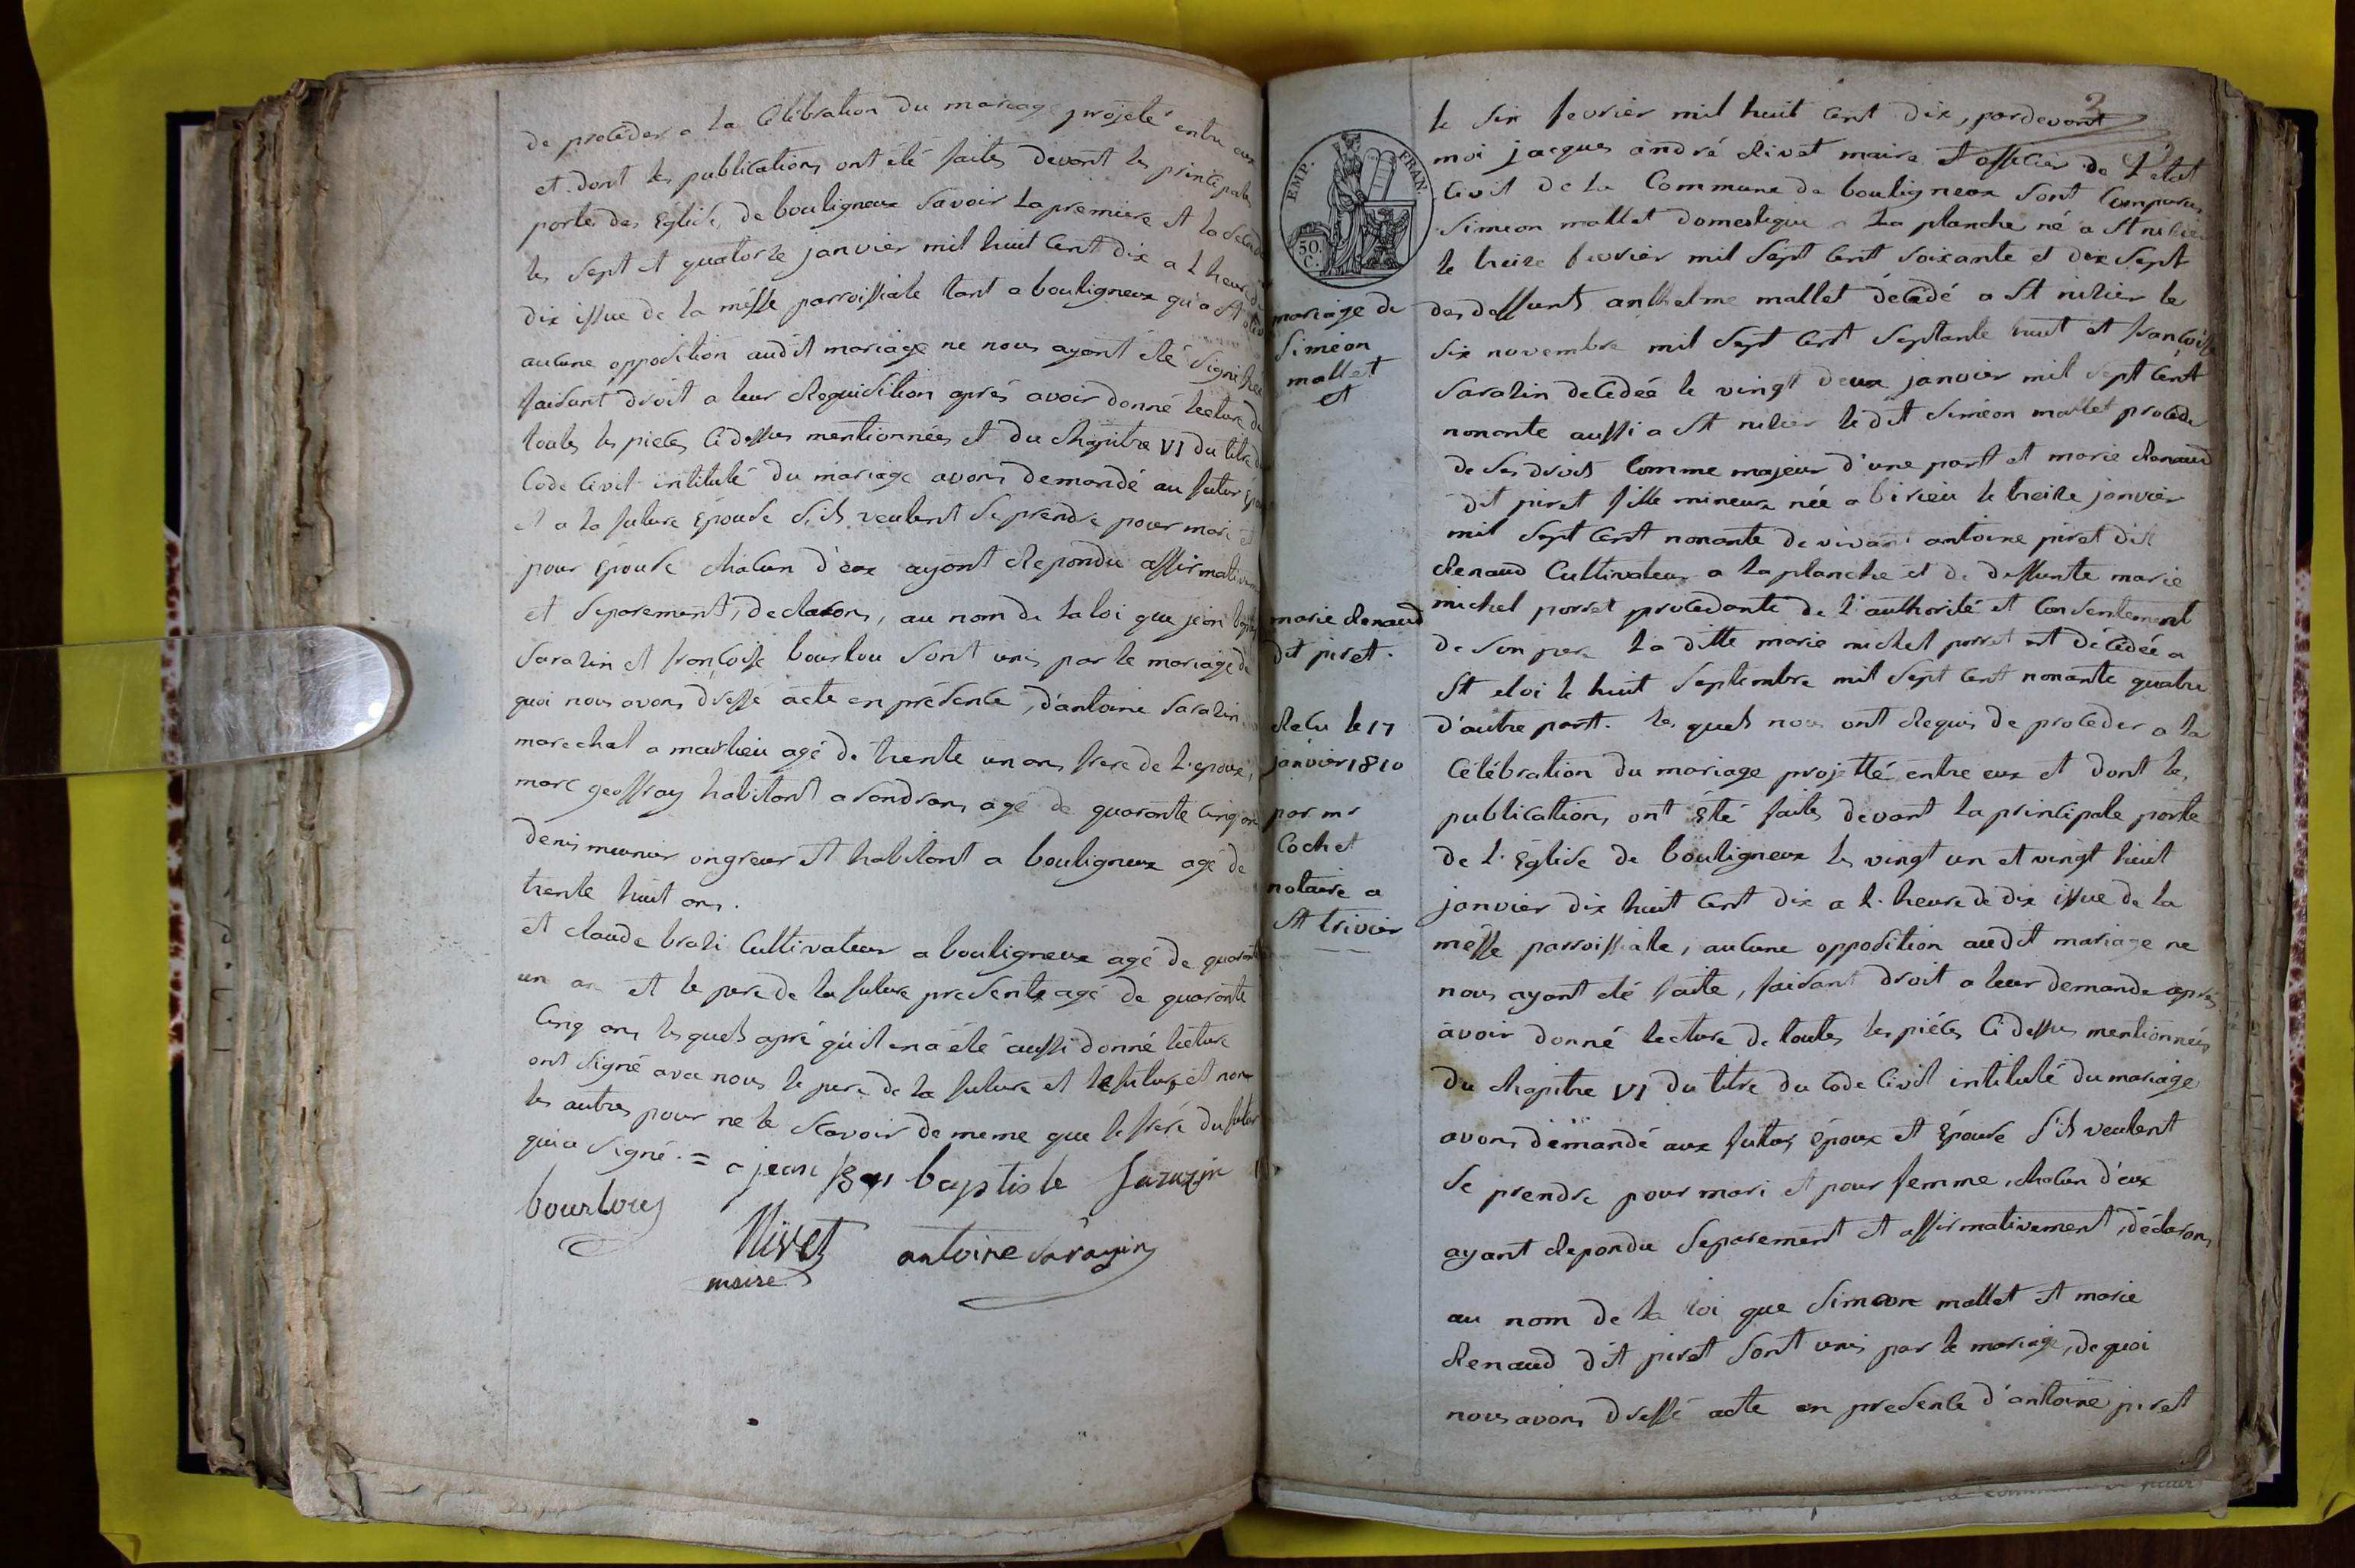 de proceder a la Célébration du mariage projeté entre eux
et dont les publications ont été faites devant les principales
portes des Eglise, de bouligneux Savoir la premiere et la Seconde
les Sept et quatorze janvier mil huit Cent dix a l'heure de
dix issue de la messe parroissiale tant a bouligneux qu'a St
aucune opposition audit mariage ne nous ayant été Signifiée
faisant droit a leur Requisition aprés avoir donné lecture de
toutes les pieces Cidessus mentionnées et du Chapitre VI du titre du
Code Civil intitulé du mariage avons demandé au futur Epoux
et a la future Epouse S'ils veulent Se prendre pour mari et
pour Epouse chacun d'eux ayant Repondu affirmativement
et Separement, declarons, au nom de la loi que jean baptiste
Sarazin et françoise bourlou Sont unis par le mariage de
quoi nous avons dressé acte en présence, d'antoine Sarazin
marechal a marlieu agé de trente un ans frere de l'epoux,
marc geoffray habitant a Sandrans agé de quarante Cinq ans
denis meunier ongreur et habitant a bouligneux agé de
trente huit ans.
et claude brazi Cultivateur a bouligneux agé de quarante
un an et le pere de la future presente agé de quarante
Cinq ans lesquels apré qu'il en a été aussi donné lécture
ont Signé avec nous le pere de la future et le futur, et non
les autres pour ne le Scavoir de meme que le frere du futur
qui a Signé. =
jean baptiste Sarazin
bourlou
Rivet
maire
antoine Sarazin
2
EMP. FRAN.
50.
C.
mariage de
Siméon
mallet
et
marie Renaud
dit piret.
Recu le 17
janvier 1810
par mr
Cochet
notaire a
St trivier
le Six fevrier mil huit Cent dix, pardevant
moi jacques andré Rivet maire et officier de l'etat
Civil de la Commune de bouligneux Sont Comparus
Siméon mallet domestique a la planche né a St nizier
le treize fevrier mil Sept Cent Soixante et dix Sept
des deffunts anthelme mallet décédé a St nizier le
Six novembre mil Sept Cent Septante huit et françoise
Sarazin decedée le vingt deux janvier mil Sept Cent
nonante aussi a St nizier ledit Siméon mallet procede
de Ses droits Comme majeur d'une part et marie Renaud
dit piret fille mineure née a birieu le treize janvier
mil Sept Cent nonante de vivant antoine piret dit
Renaud Cultivateur a la planche et de deffunte marie
michel porret procedante de l'authorité et Consentement
de Son pere la ditte marie michel porret est décédée a
St eloi le huit Septembre mil Sept Cent nonante quatre
d'autre part. les quels nous ont Requis de procéder a la
Célébration du mariage projetté entre eux et dont les
publications, ont été faites devant la principale porte
de l'Eglise de bouligneux les vingt un et vingt huit
janvier dix huit Cent dix a l'heure de dix issue de la
mésse parroissiale, aucune opposition audit mariage ne
nous ayant eté faite, faisant droit a leur demande aprés
avoir donné lecture de toutes les piéces Cidessus mentionnées
du Chapitre VI du titre du Code Civil intitulé du mariage
avons demandé aux futurs époux et Epouse S'ils veulent
Se prendre pour mari et pour femme, chacun d'eux
ayant Repondu Separement et affirmativement, déclarons
au nom de la loi que Simeon mallet et marie
Renaud dit piret Sont unis par le mariage, de quoi
nous avons dressé acte en presence d'antoine piret